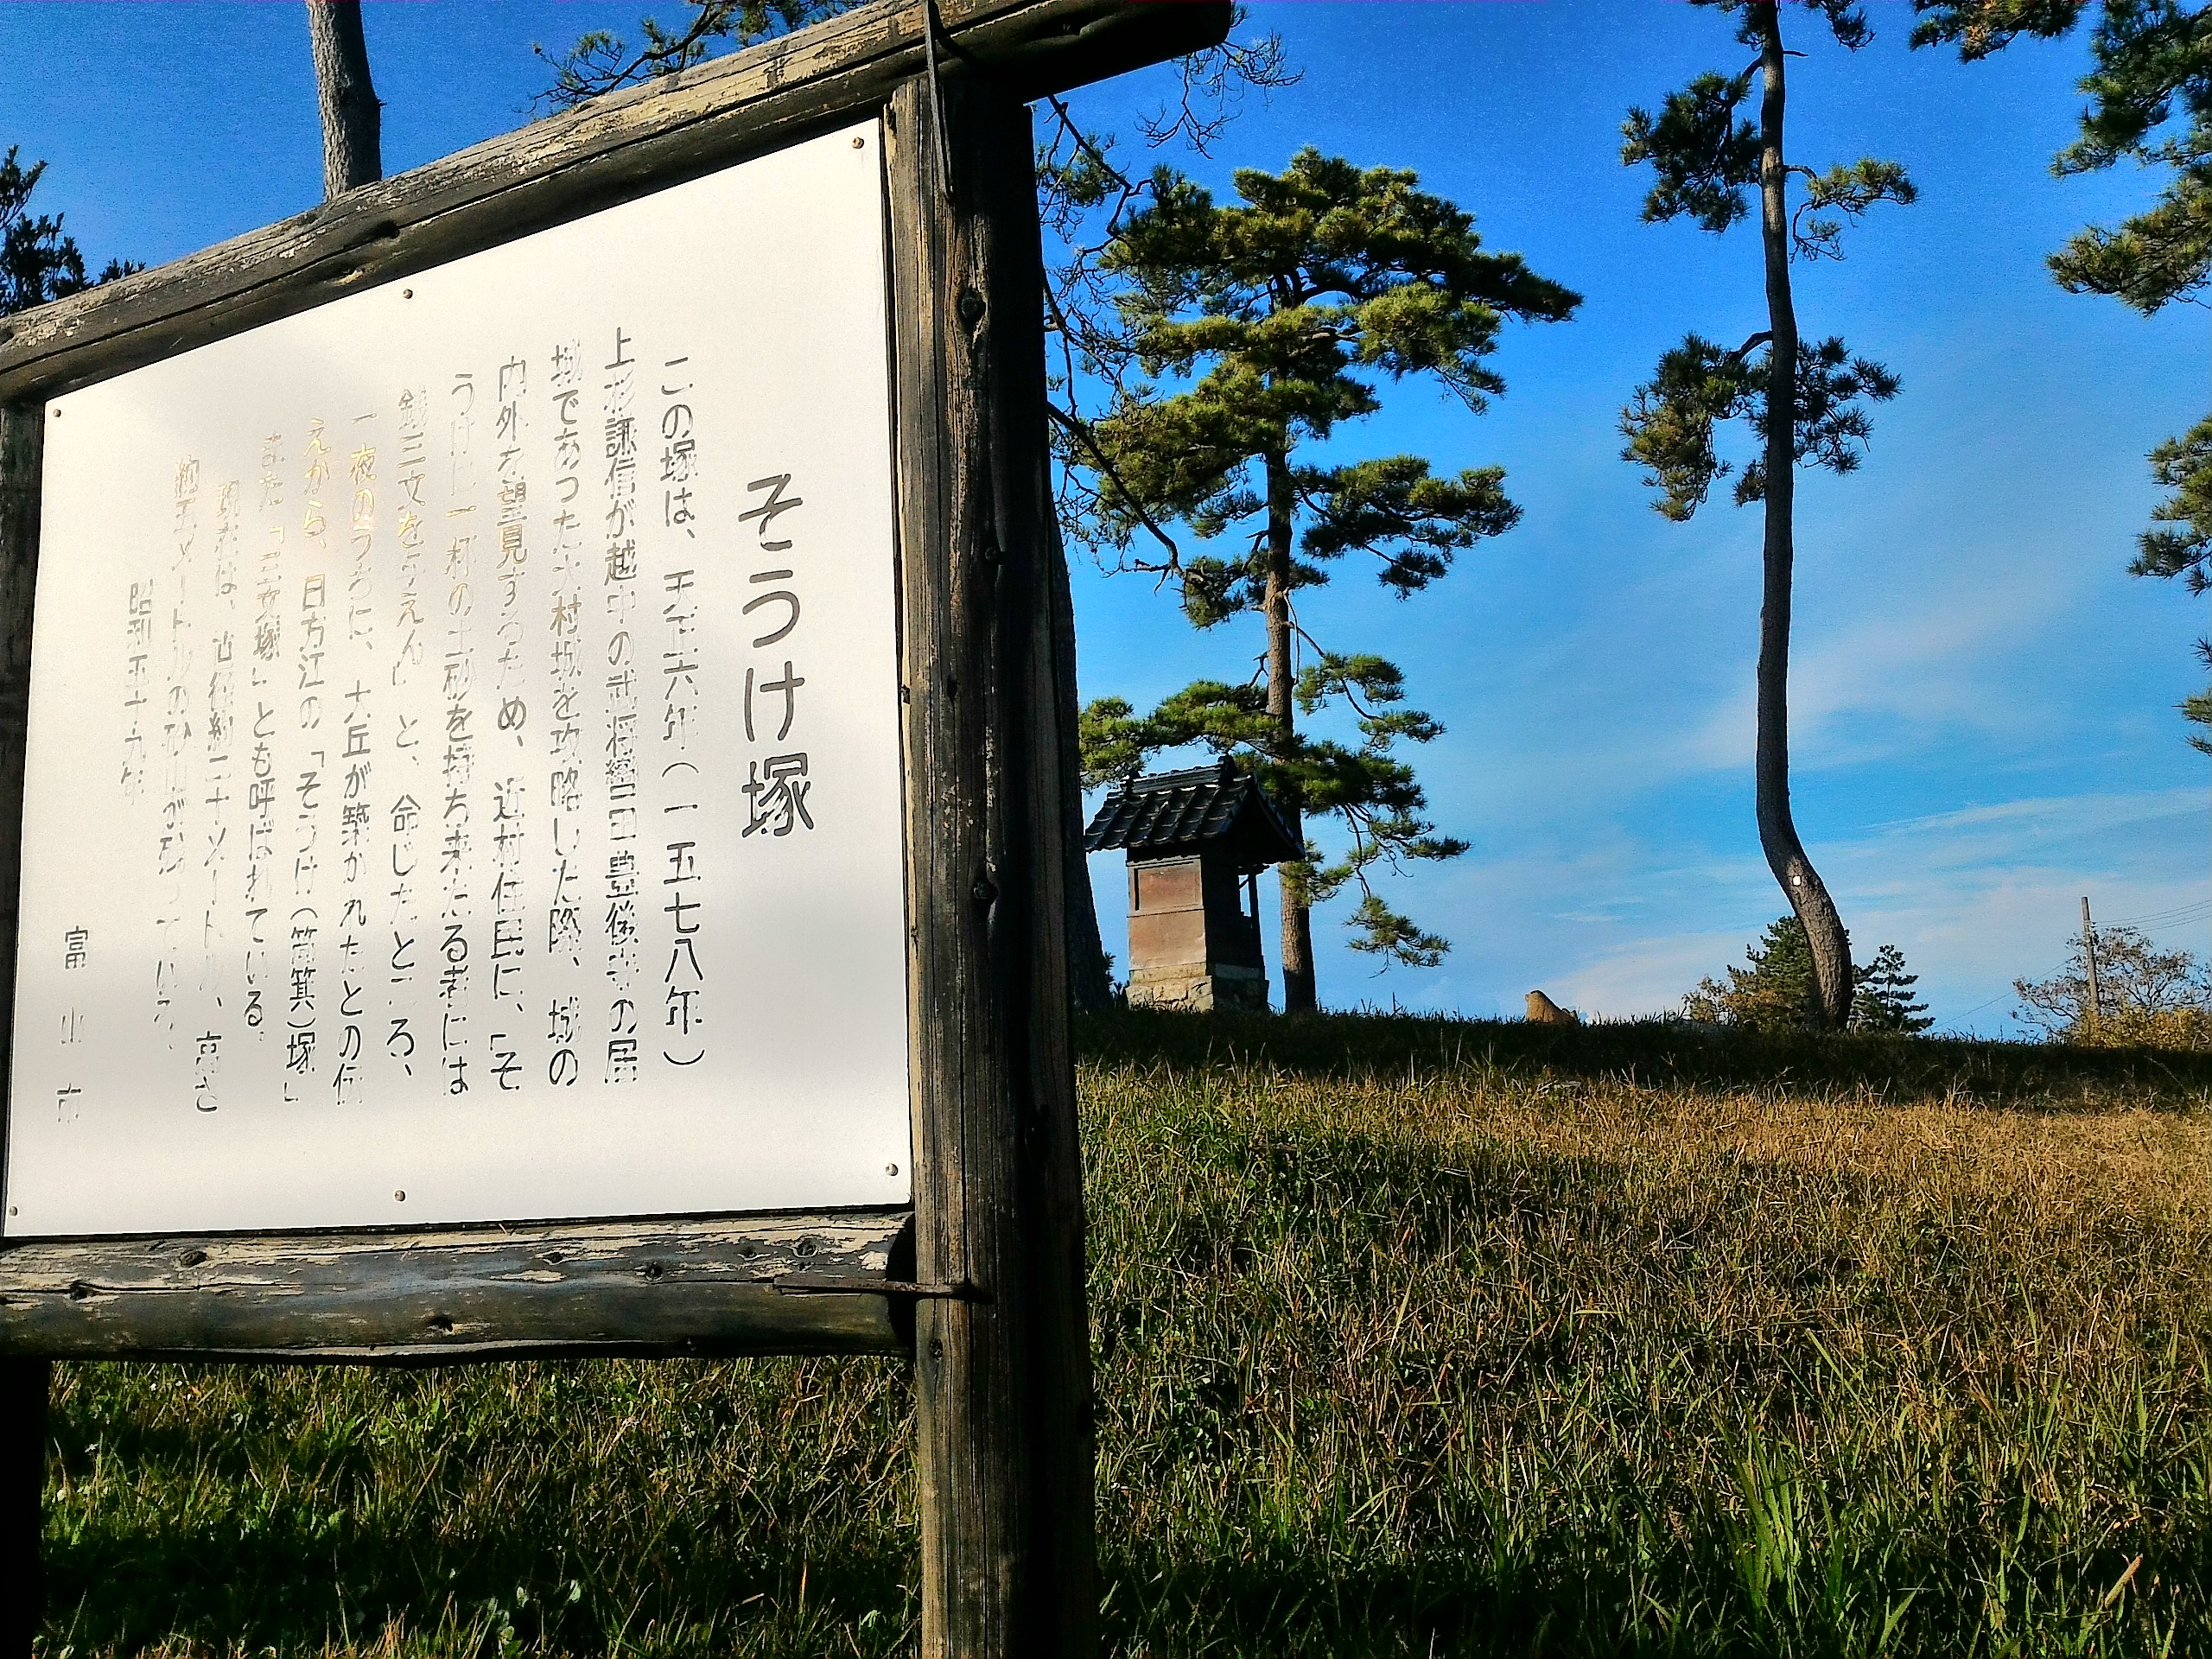 そうけ塚
この塚は、天正六年（一五七八年）
上杉謙信が越中の武将轡田豊後守の居
城であった大村城を攻略した際、城の
内外を望見するため、近村住民に、「そ
うけに一杯の土砂を持ち来たる者には
銭三文を与えん」と、命じたところ、
一夜のうちに、大丘が築かれたとの伝
えから、日方江の「そうけ（笥箕）塚」
また「三文塚」とも呼ばれている。
現在は、直径約二十メートル、高さ
約五メートルの砂山が残っている。
昭和五十九年
富山市